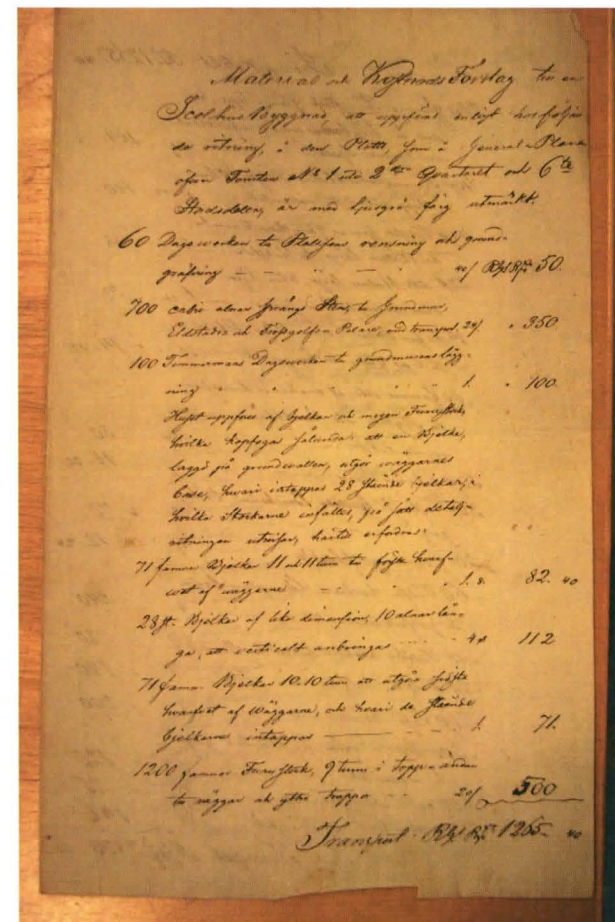 Material och Kostnads Förslag till en
Scolhus Byggnad, att uppföras enligt härföljan
de ritning, å den Platts, som å General-Planen
öfver Tomten No 1 uti 2dra Quarteret och 6te
Stadsdelen, är med ljusgrå färg utmärkt.
60 Dagsverken till Plattsens rensning och grund-
gräfning 40/ Rgs 50.
700 cubic alnar Sten, till Grundmur,
Eldstäder och Pelare, transport 24/ " 350
100 Timmermans Dagsverken till grundmurens lägg-
ning 1. " 100.
Huset uppföres af bjelkar och mogen Furustock,
hvilka hopfogas sålunda: att en Bjelke,
laggd på grundvallen, utgör wäggarnes
base, hvari intappas 28 stående bjelkar, i
hvilka stockarne infälles, på sätt detalj-
ritningen utvisar, härtill erfordras:
71 famnar Bjelkar 11 och 11 tum till första hvarf-
vet af wäggarne 1. 8. 82. 40
28 st. Bjelkar af lika dimension, 10 alnar lån-
ga, att verticalt anbringas 4 " 112
71 famn. Bjelkar 10.10 tum att utgöra sista
hvarfvet af Wäggarne, och hvari de stående
bjelkarne intappas 1. 71.
1200 famnar Furustock, 9 tum i topp-ändan
till väggar och yttre trappor 20/ 500
Transport. Rgs 1265. 40